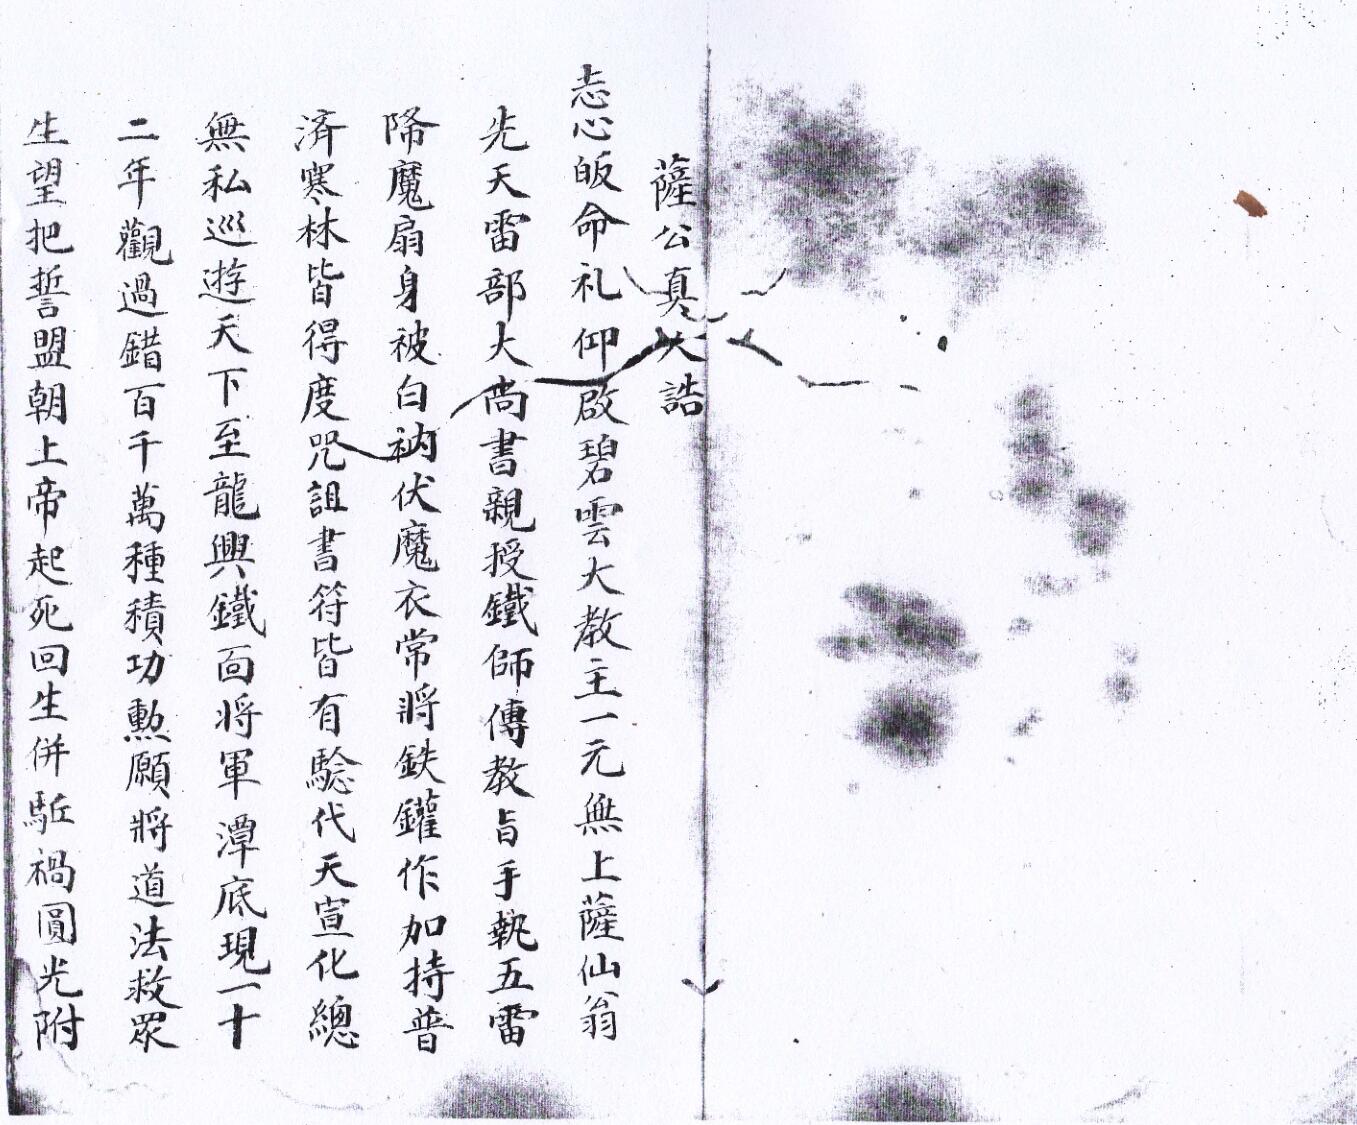 薩公真人誥
志心皈命礼仰啟碧雲大教主一元無上薩仙翁
先天雷部大尚書親授鐵師傳教旨手執五雷
降魔扇身被白衲伏魔衣常將鉄鑵作加持普
済寒林皆得度咒詛書符皆有驗代天宣化總
無私巡遊天下至龍興鐵面將軍潭底現一十
二年觀過錯百千萬種積功勲願將道法救眾
生望把誓盟朝上帝起死回生併駈禍圓光附